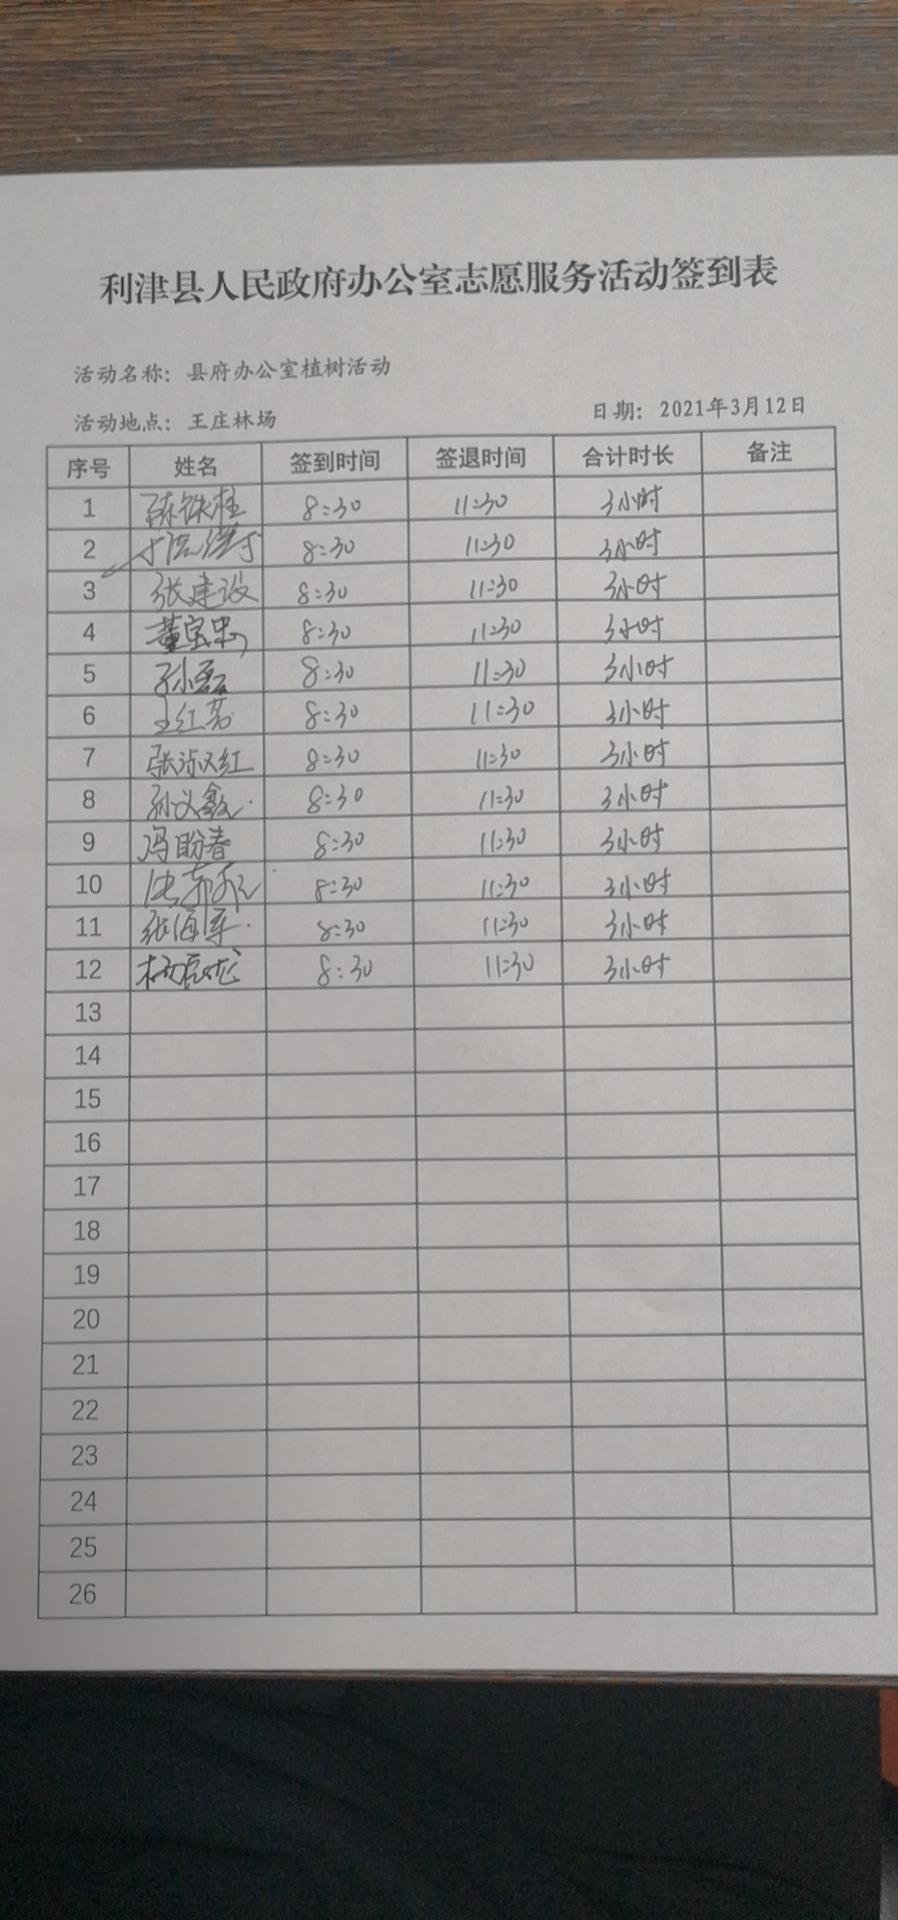 利津县人民政府办公室志愿服务活动签到表
活动名称：县府办公室植树活动
活动地点：王庄林场 日期：2021年3月12日
序号 姓名 签到时间 签退时间 合计时长 备注
1 陈铁柱 8:30 11:30 3小时
2 8:30 11:30 3小时
3 张建设 8:30 11:30 3小时
4 董宝忠 8:30 11:30 3小时
5 孙磊 8:30 11:30 3小时
6 王红芳 8:30 11:30 3小时
7 张淑红 8:30 11:30 3小时
8 孙义鑫 8:30 11:30 3小时
9 冯盼春 8:30 11:30 3小时
10 8:30 11:30 3小时
11 张海军 8:30 11:30 3小时
12 8:30 11:30 3小时
13
14
15
16
17
18
19
20
21
22
23
24
25
26